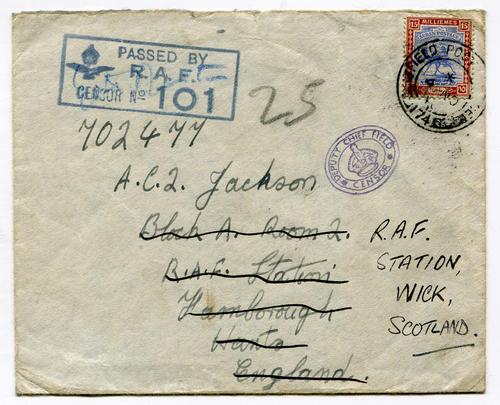 PASSED BY
R.A.F.
CENSOR Nº 101
15 MILLIEMES 15
SUDAN POSTAGE
FIELD POST
174
25
DEPUTY CHIEF FIELD
CENSOR
702477
A.C.2. Jackson
Block A. Room 2.
R.A.F. Station
Farnborough
Hants
England.
R.A.F.
STATION,
WICK,
SCOTLAND.